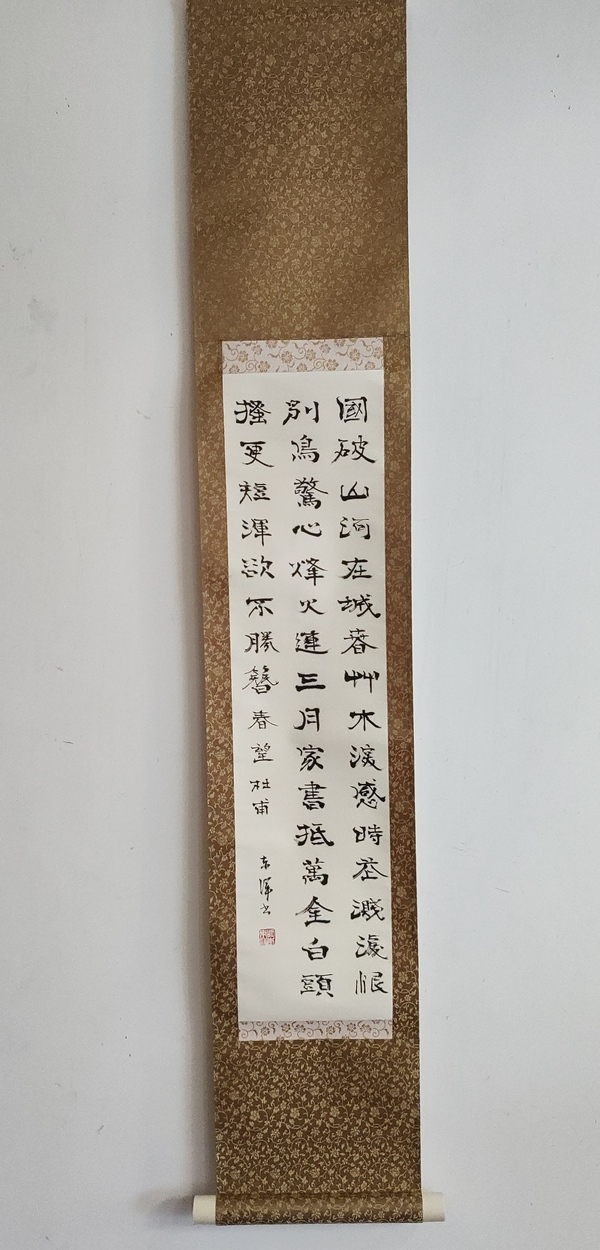 國破山河在城春艸木深感時花濺淚恨
別鳥驚心烽火連三月家書抵萬金白頭
搔更短渾欲不勝簪春望杜甫